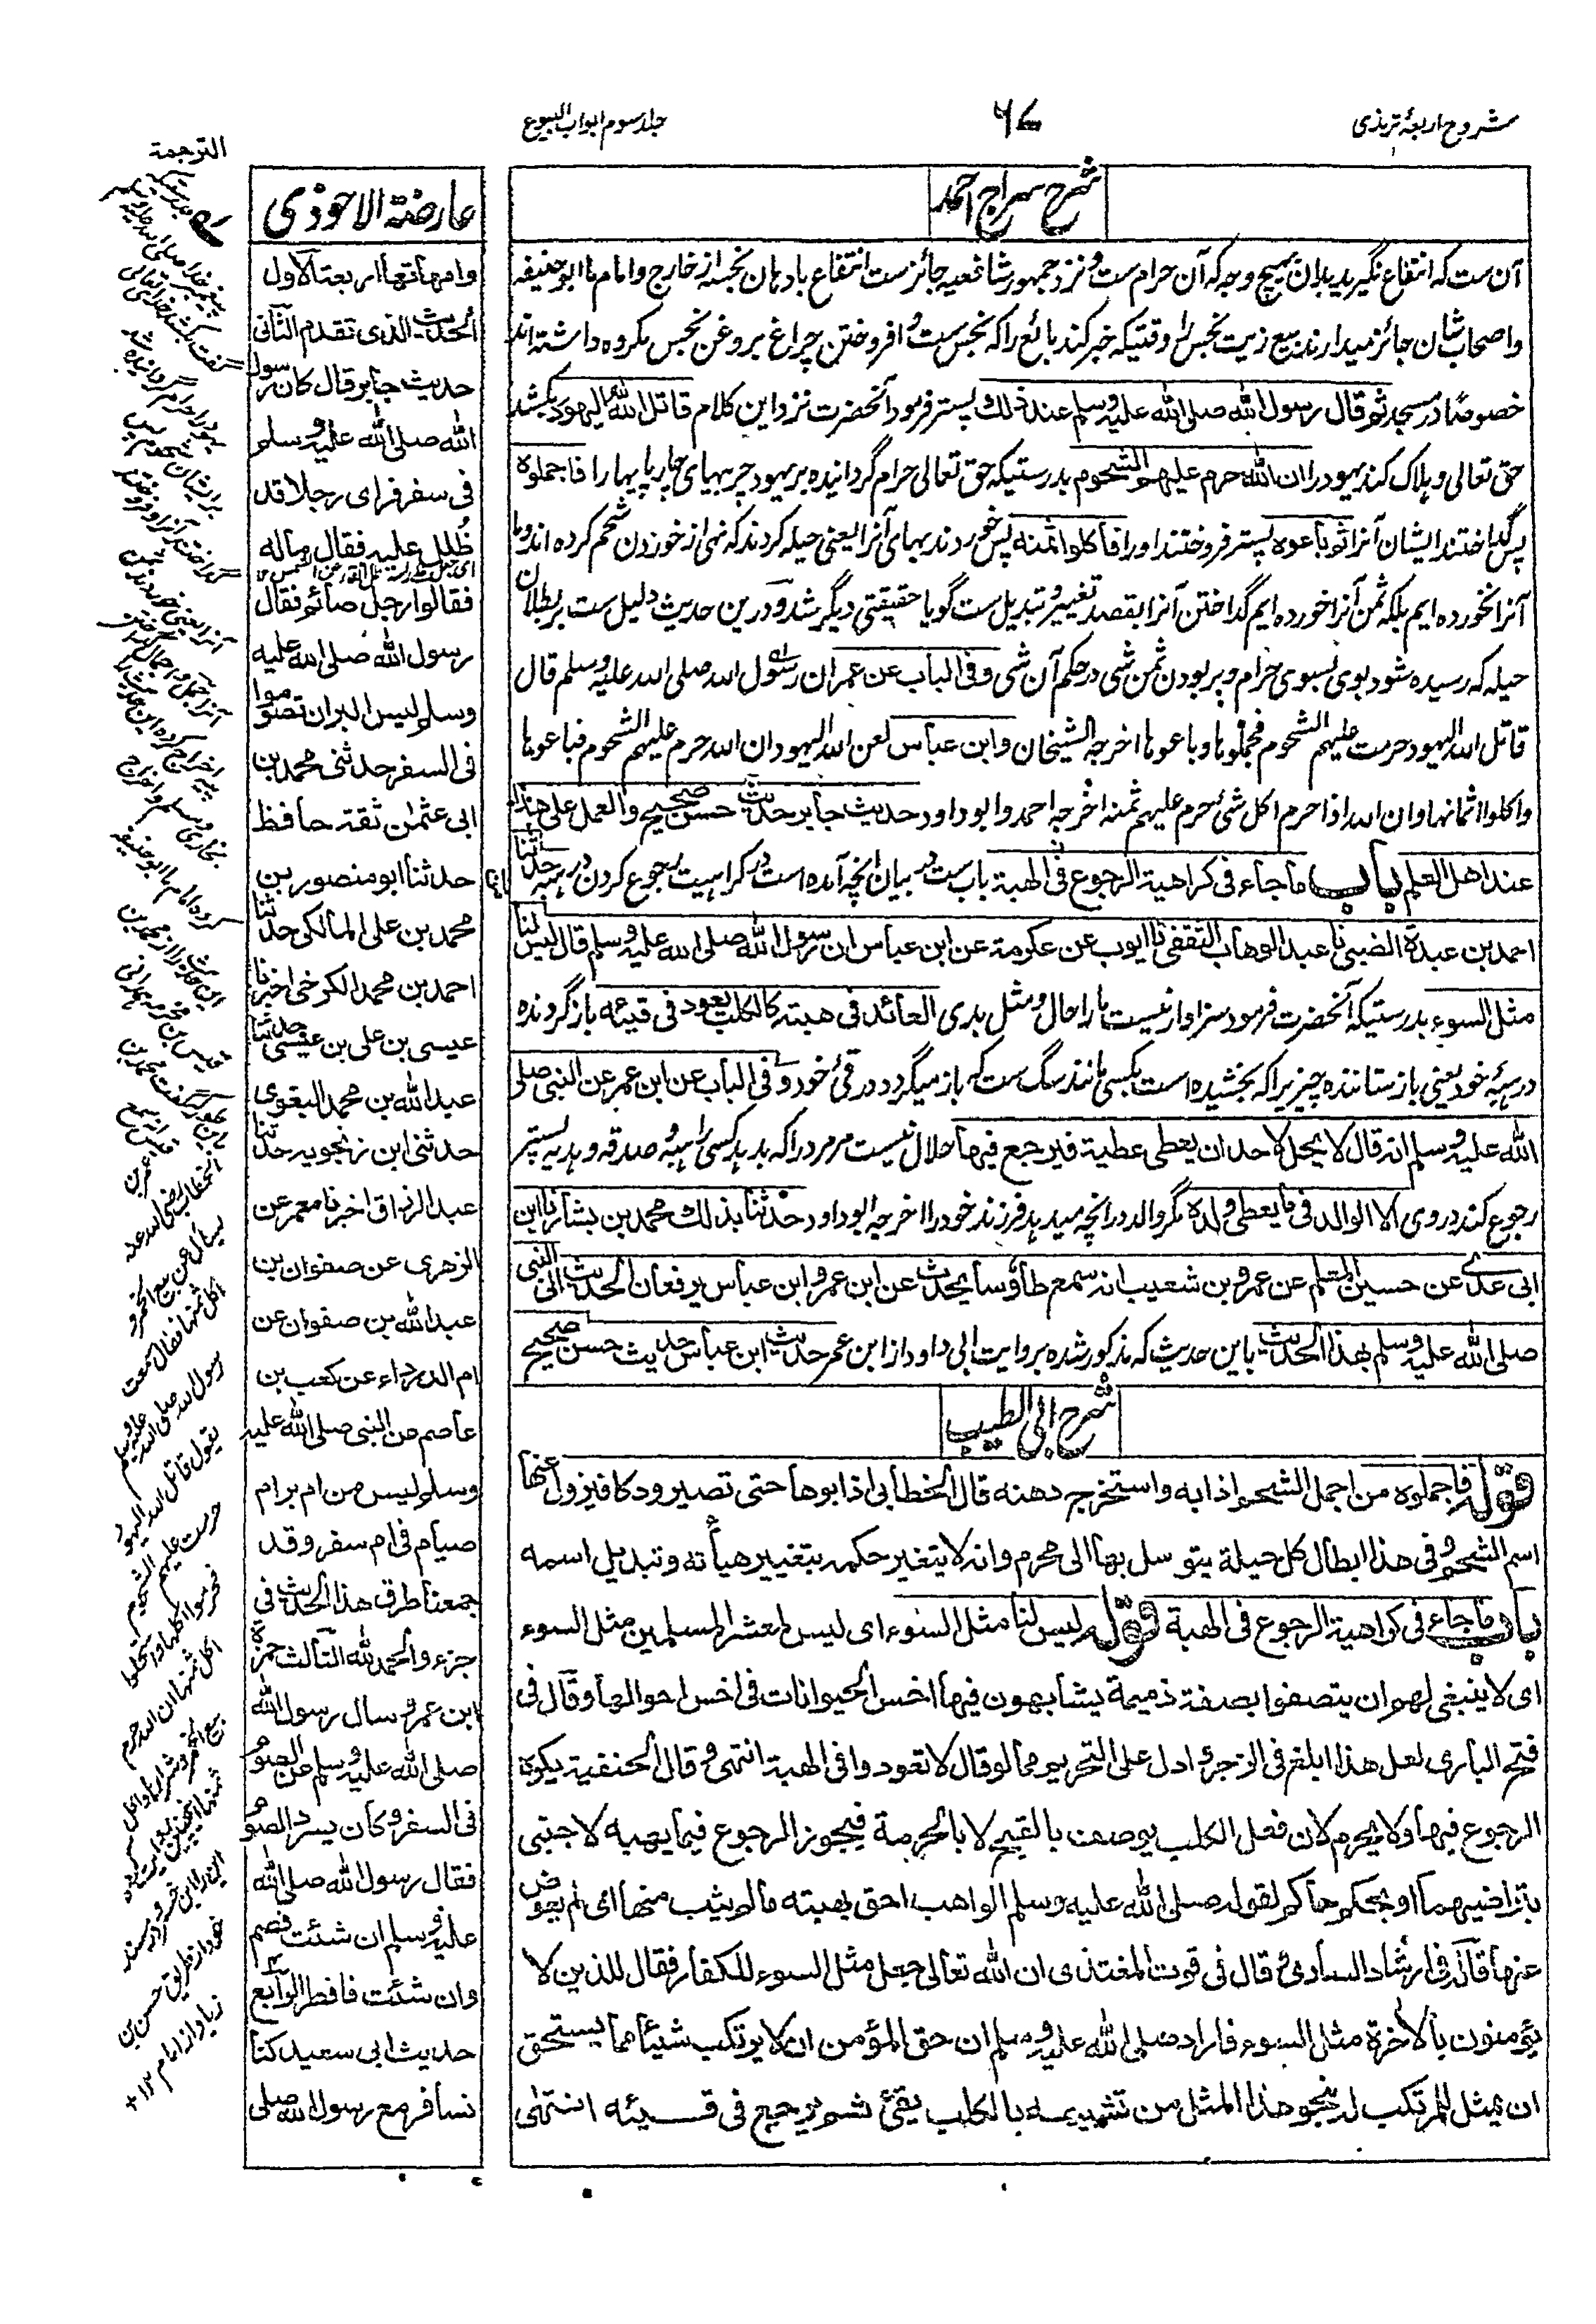 شروح اربعۂ ترمذی
۶۷
جلد سوم ابواب البیوع
شرح سراج احمد
آن ست که انتفاع نگیرید بدان بهیچ وجه که آن حرام ست و نزد جمهور شافعیه جائز ست انتفاع بادهان نجسه از خارج و امام ما ابو حنیفه
و اصحاب شان جائز میدارند بیع زیت نجس را وقتیکه خبر کند بائع را که نجس ست و افروختن چراغ بروغن نجس مکروه داشته اند
خصوصًا در مسجد ثم قال رسول الله صلی الله علیه وسلم عند ذلك پستر فرمود آنحضرت نزد این کلام قاتل الله الیهود بکشد
حق تعالی و هلاک کند یهود را ان الله حرم علیهم الشحوم بدرستیکه حق تعالی حرام گردانیده بر یهود چربیهای چارپایها را فاجملوه
پس گداختند ایشان آنرا ثم باعوه پستر فروختند او را فاکلوا ثمنه پس خوردند بهای آنرا یعنی حیله کردند که نهی از خوردن شحم کرده اند و ما
آنرا نخورده ایم بلکه ثمن آنرا خورده ایم گداختن آنرا بقصد تغییر و تبدیل ست گویا حقیقتی دیگر شد و درین حدیث دلیل ست بر بطلان
حیله که رسیده شود بوی بسوی حرام و بر بودن ثمن شی در حکم آن شی وفی الباب عن عمران رسول الله صلی الله علیه وسلم قال
قاتل الله الیهود حرمت علیهم الشحوم فجملوها وباعوها اخرجه الشیخان وابن عباس لعن الله الیهود ان الله حرم علیهم الشحوم فباعوها
واکلوا اثمانها وان الله اذا حرم اکل شئ حرم علیهم ثمنه اخرجه احمد وابو داود حدیث جابر حدیث حسن صحیح والعمل علی هذا
عند اهل العلم باب ما جاء فی کراهیة الرجوع فی الهبة باب ست در بیان آنچه آمده است در کراهیت رجوع کردن در هبه حدثنا
احمد بن عبدة الضبی نا عبد الوهاب الثقفی نا ایوب عن عکرمة عن ابن عباس ان رسول الله صلی الله علیه وسلم قال لیس لنا
مثل السوء بدرستیکه آنحضرت فرمود سزاوار نیست ما را حال و مثل بدی العائد فی هبته کالکلب یعود فی قیئه باز گردنده
در هبهٔ خود یعنی باز ستاننده چیزیرا که بخشیده است بکسی مانند سگ ست که باز میگردد در قئ خود وفی الباب عن ابن عمر عن النبی صلی
الله علیه وسلم انه قال لا یحل لاحد ان یعطی عطیة فیرجع فیها حلال نیست مر مرد را که بدهد کسی را هبه و صدقه و هدیه پستر
رجوع کند در وی الا الوالد فی ما یعطی ولده مگر والد در آنچه میدهد فرزند خود را اخرجه ابو داود حدثنا بذلك محمد بن بشار نا ابن
ابی عدی عن حسین المعلم عن عمرو بن شعیب انه سمع طاؤسا یحدث عن ابن عمر وابن عباس یرفعان الحدیث الی النبی
صلی الله علیه وسلم بهذا الحدیث باین حدیث که مذکور شده بروایت ابی داود از ابن عمر حدیث ابن عباس حدیث حسن صحیح
شرح ابی الطیب
قوله فاجملوه من اجمل الشحم اذابه واستخرج دهنه قال الخطابی اذابوها حتی تصیر ودکا فیزول عنها
اسم الشحم وفی هذا ابطال کل حیلة یتوسل بها الی محرم وانه لا یتغیر حکمه بتغییر هیأته وتبدیل اسمه
باب ما جاء فی کراهیة الرجوع فی الهبة قوله لیس لنا مثل السوء ای لیس لمعشر المسلمین مثل السوء
ای لا ینبغی لهم ان یتصفوا بصفة ذمیمة یشابهون فیها اخس الحیوانات فی اخس احوالها وقال فی
فتح الباری لعل هذا ابلغ فی الزجر وادل علی التحریم مما لو قال لا تعودوا فی الهبة انتهی وقال الحنفیة یکره
الرجوع فیها ولا یحرم لان فعل الکلب یوصف بالقبح لا بالحرمة فیجوز الرجوع فیما یهبه لاجنبی
بتراضیهما او بحکم حاکم لقوله صلی الله علیه وسلم الواهب احق بهبته ما لم یثب منها ای لم یعوض
عنها قاله فی ارشاد الساری وقال فی قوت المغتذی ان الله تعالی جعل مثل السوء للکفار فقال للذین لا
یؤمنون بالاخرة مثل السوء فاراد صلی الله علیه وسلم ان حق المؤمن ان لا یرتکب شیئا مما یستحق
ان یمثل المرتکب له بنحو هذا المثل من تشبیهه بالکلب یقئ ثم یرجع فی قیئه انتهی
عارضة الاحوذی
وامهاتها اربعة الاول
الحدیث الذی تقدم الثانی
حدیث جابر قال کان رسول
الله صلی الله علیه وسلم
فی سفر فرای رجلا قد
ظلل علیه فقال ما له
فقالوا رجل صائم فقال
رسول الله صلی الله علیه
وسلم لیس البر ان تصوموا
فی السفر حدثنی محمد بن
ابی عثمان ثقة حافظ
حدثنا ابو منصور بن
محمد بن علی المالکی حدثنا
احمد بن محمد الکرخی اخبرنا
عیسی بن علی بن عیسی حدثنا
عبد الله بن محمد البغوی
حدثنی ابن زنجویه حدثنا
عبد الرزاق اخبرنا معمر عن
الزهری عن صفوان بن
عبد الله بن صفوان عن
ام الدرداء عن کعب بن
عاصم عن النبی صلی الله علیه
وسلم لیس من ام برام
صیام فی ام سفر وقد
جمعنا طرق هذا الحدیث فی
جزء والحمد لله الثالث حمزة
ابن عمرو سال رسول الله
صلی الله علیه وسلم عن الصوم
فی السفر وکان یسرد الصوم
فقال رسول الله صلی الله
علیه وسلم ان شئت فصم
وان شئت فافطر الرابع
حدیث ابی سعید کنا
نسافر مع رسول الله صلی
الترجمة
الخطاب رضی الله عنه
یسأل عن بیع الخمر و
اکل ثمنها فقال سمعت
رسول الله صلی الله علیه وسلم
یقول قاتل الله الیهود
حرمت علیهم الشحوم